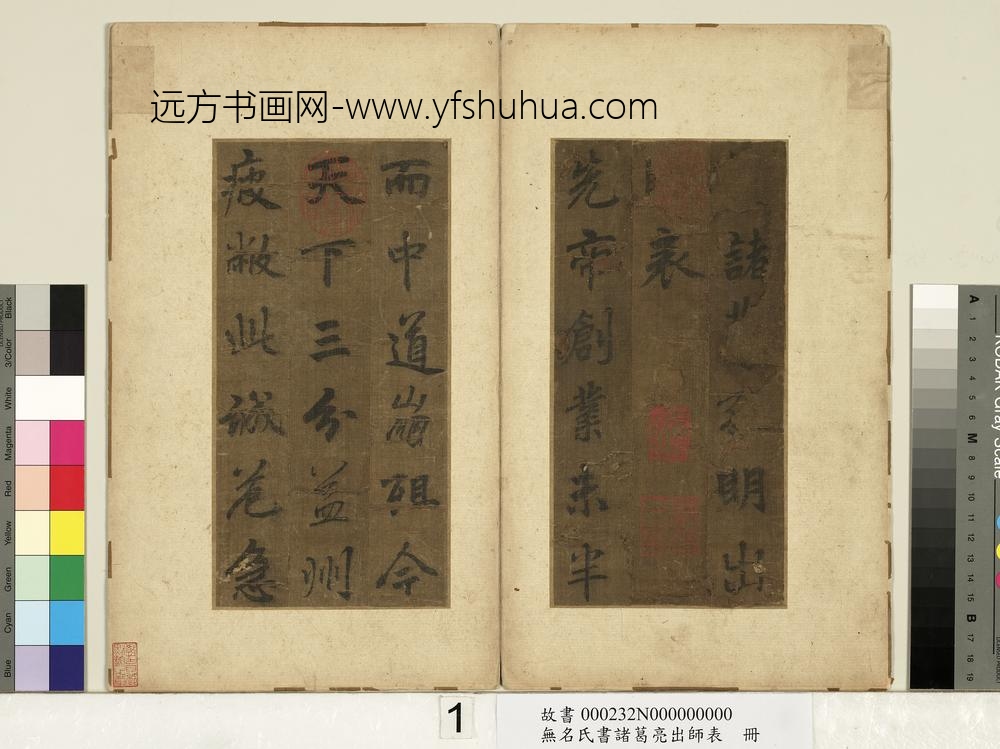 远方书画网-www.yfshuhua.com
諸明出
表
先帝創業未半
而中道崩殂今
天下三分益州
疲敝此誠危急
Black
3/Color
White
Magenta
Red
Yellow
Green
Cyan
Blue
KODAK Gray Scale
A 1 2 3 4 5 6 M 8 9 10 11 12 13 14 15 B 17 18 19
1
故書 000232N000000000
無名氏書諸葛亮出師表 冊